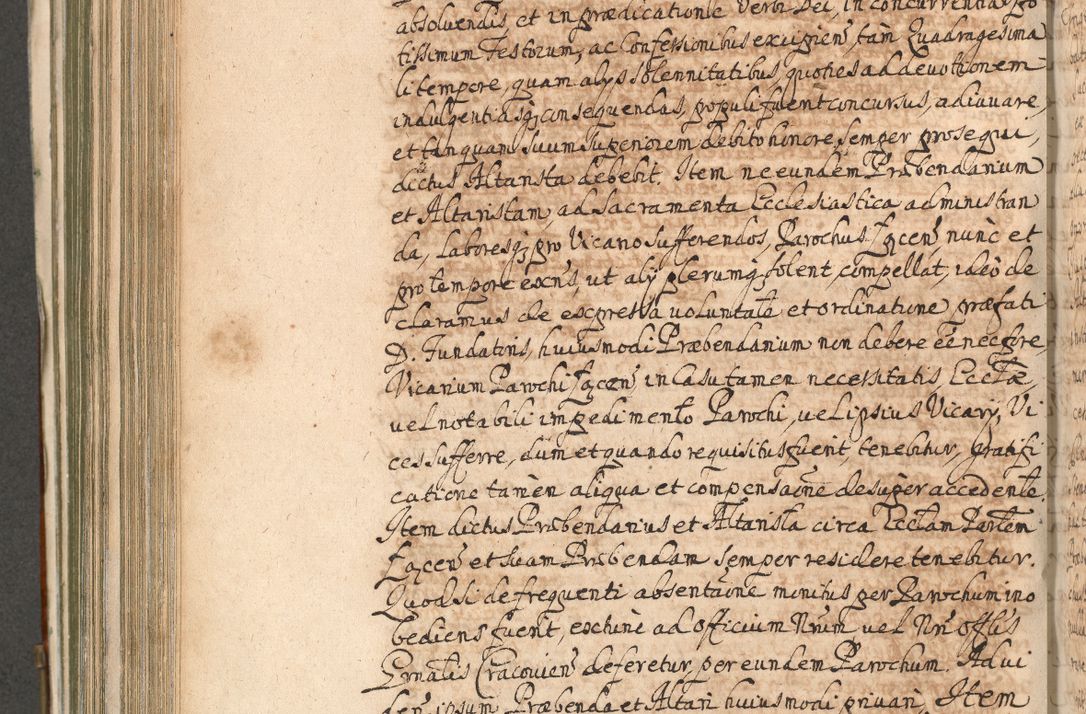 absoluendis et in prædicatione Verbi Dei, in concurrentia po
tissimum Festorum, ac Confessionibus excipien, tam Quadragesima
li tempore, quam alys solennitatibus, quoties ad deuotionem
indulgentiasq consequendas, populi fuerit concursus, adiuuare,
et tanquam suum superiorem debito honore, semper prosequi,
dictus Altarista debebit. Item ne eundem Præbendarium
et Altaristam, ad Sacramenta Ecclesiastica administran
da, laboresq pro Vicario sufferendos, Parochus Łącen nunc et
pro tempore exns, ut aly plerumq solent, compellat, ideo de
claramus de expressa voluntate et ordinatione præfati
D. Fundatoris, huiusmodi Præbendarium non debere ee nec fore,
Vicarium Parochi Łącen, in Casu tamen necessitatis, Ecclæ,
uel notabili impedimento Parochi, uel ipsius Vicary, Vi
ces sufferre, dum et quando requisitus fuerit, tenebitur, gratifi
catione tamen aliqua et compensaone desuper accedente.
Item dictus Præbendarius et Altarista circa Ecclam Parlem
Łącen et suam Præbendam semper residere tenebitur.
Quod si de frequenti absentaone monitus per Parochum ino
bediens fuerit, extunc ad officium Nrum uel Nri Offlis
Grnalis Cracouien deferetur, per eundem Parochum. Ad ui
den ipsum Præbenda et Altari huiusmodi priuari, Item